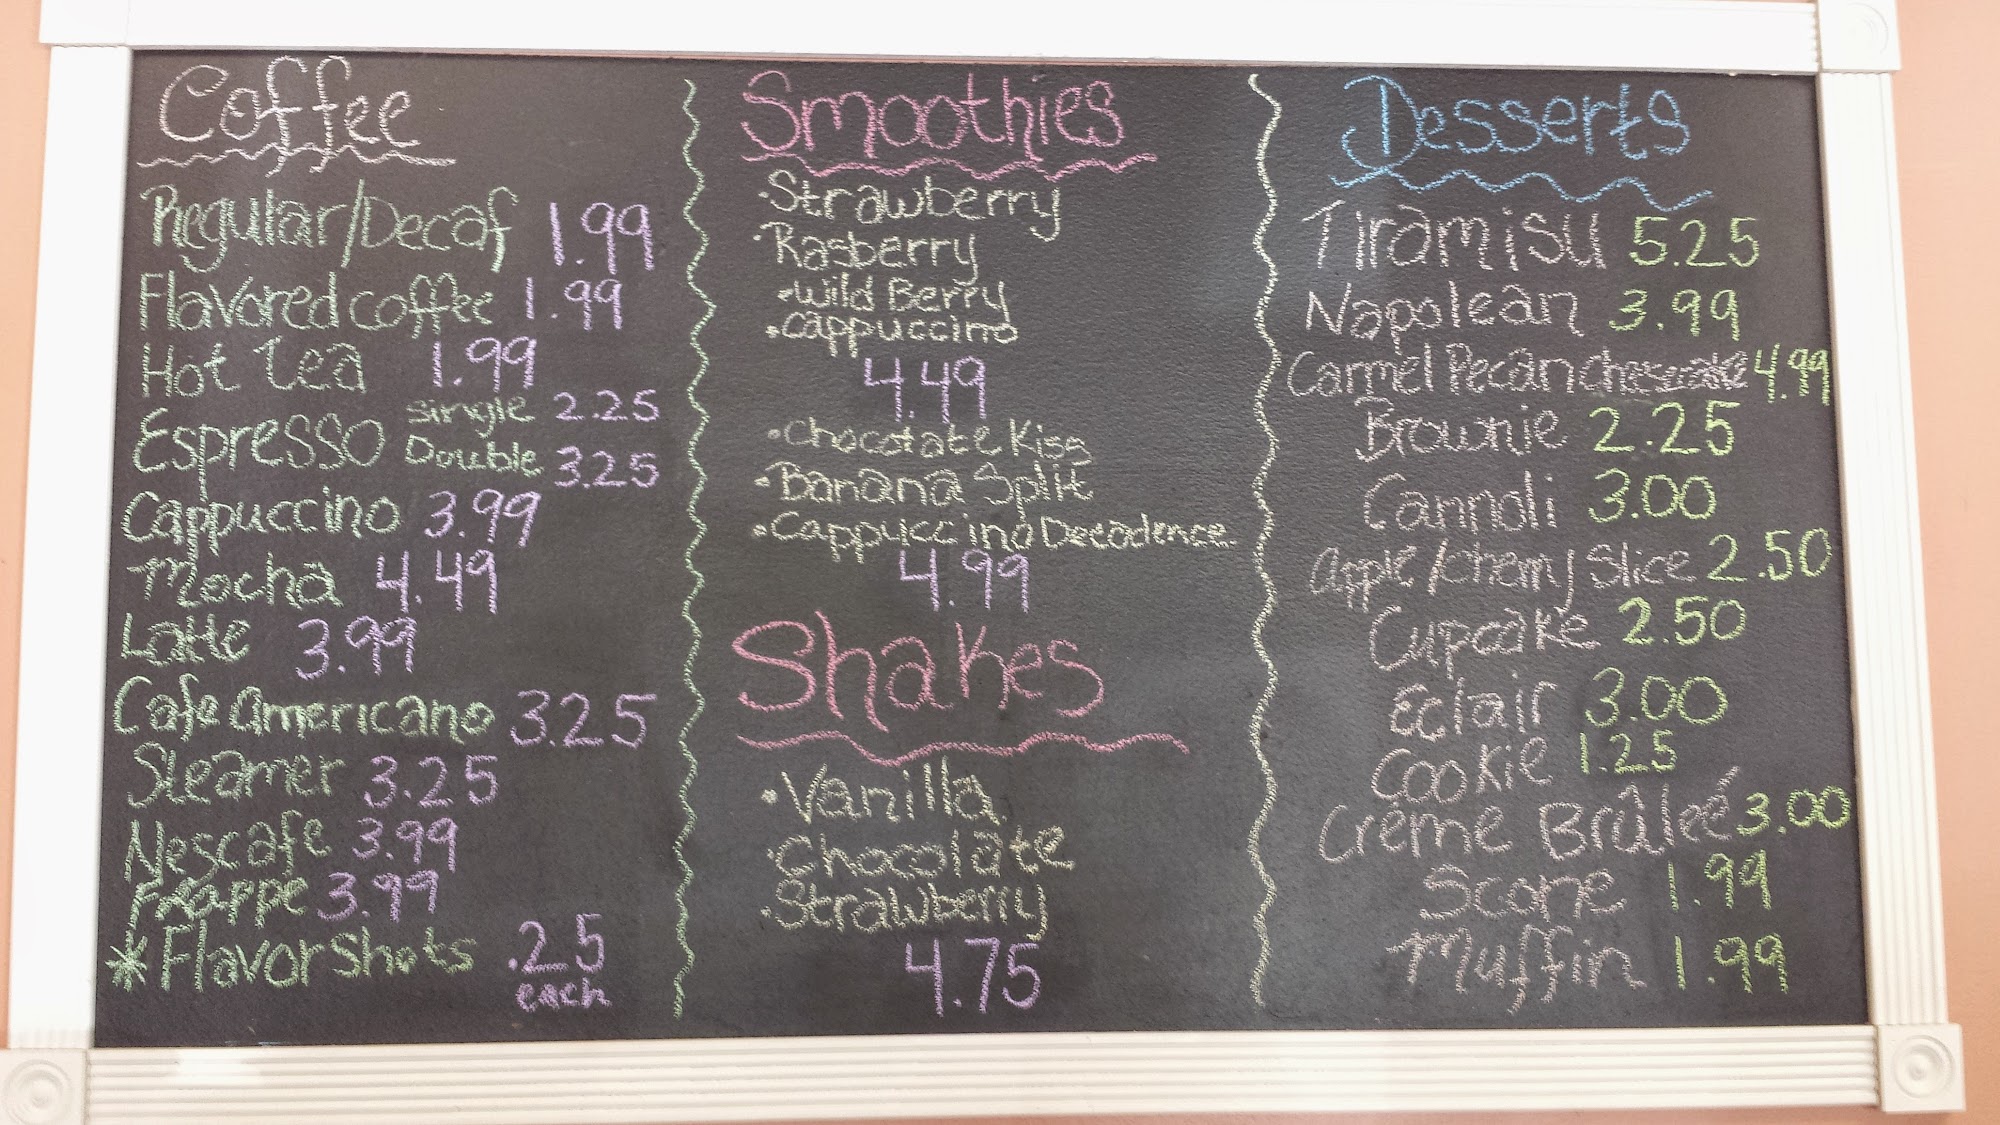 Coffee
Regular/Decaf 1.99
Flavored coffee 1.99
Hot tea 1.99
Espresso single 2.25
Double 3.25
Cappuccino 3.99
Mocha 4.49
Latte 3.99
Cafe Americano 3.25
Steamer 3.25
Nescafe 3.99
Frappe 3.99
*Flavor Shots .25
each
Smoothies
·Strawberry
·Rasberry
·Wild Berry
·Cappuccino
4.49
·Chocolate Kiss
·Banana Split
·Cappuccino Decadence
4.99
Shakes
·Vanilla
·Chocolate
·Strawberry
4.75
Desserts
Tiramisu 5.25
Napolean 3.99
Carmel Pecan Cheesecake 4.99
Brownie 2.25
Cannoli 3.00
Apple/Cherry Slice 2.50
Cupcake 2.50
Eclair 3.00
Cookie 1.25
Crème Brûleé 3.00
Scone 1.99
Muffin 1.99